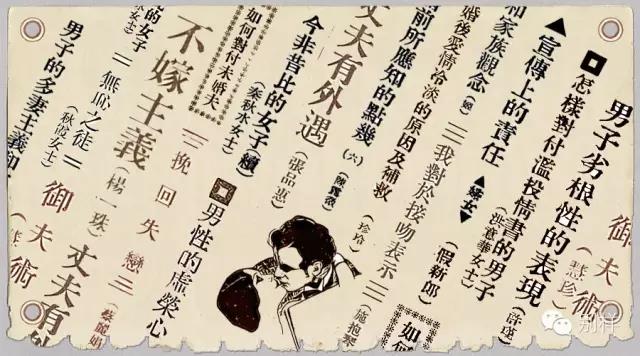 御夫術
(慧珍)
男子劣根性的表現
(許瑾)
怎樣對付濫投情書的男子
(沙意華女士)
▲宣傳上的責任▲
和家族觀念
(假新郎)
我對於接吻表示
(施抱琴
婚後愛情冷淡的原因及補救
(珍玲)
前所應知的點幾
(六)
丈夫有外遇
(張品惠)
今非昔比的女子
(秦秋水女士)
如何對付未婚夫
男性的虛榮心
不嫁主義
(楊一珠)
挽回失戀
(蔡麗娟
的女子
無Y之徒
男子的多妻主義和
(秋霞女士)
丈夫有外
御夫術
如何
别样